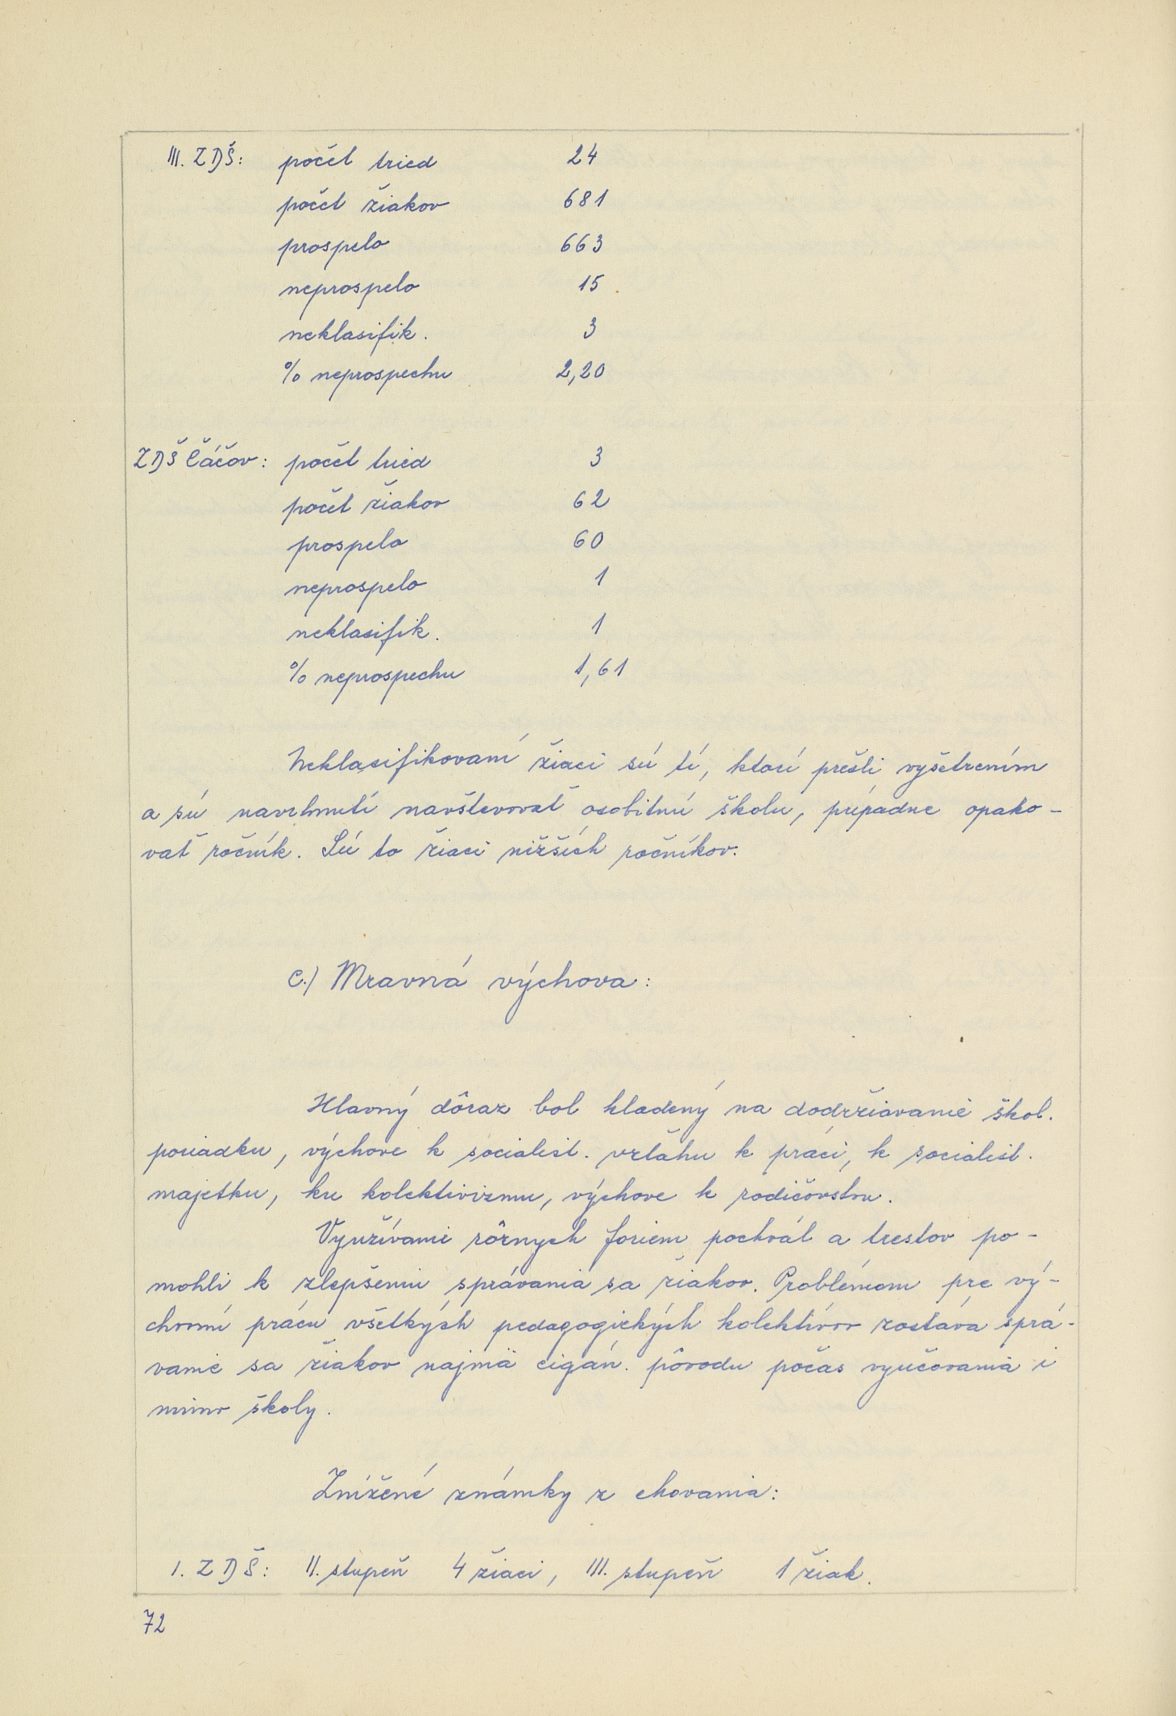 III. ZDŠ: počet tried 24
počet žiakov 681
prospelo 663
neprospelo 15
neklasifik. 3
% neprospechu 2,20
ZDŠ Čáčov: počet tried 3
počet žiakov 62
prospelo 60
neprospelo 1
neklasifik. 1
% neprospechu 1,61
Neklasifikovaní žiaci sú tí, ktorí prešli vyšetrením
a sú navrhnutí navštevovať osobitnú školu, prípadne opako-
vať ročník. Sú to žiaci nižších ročníkov.
c.) Mravná výchova:
Hlavný dôraz bol kladený na dodržiavanie škol.
poriadku, výchove k socialist. vzťahu k práci, k socialist.
majetku, ku kolektivizmu, výchove k rodičovstvu.
Využívanie rôznych foriem pochvál a trestov po-
mohli k zlepšeniu správania sa žiakov. Problémom pre vý-
chovnú prácu všetkých pedagogických kolektívov zostáva sprá-
vanie sa žiakov najmä cigán. pôvodu počas vyučovania i
mimo školy.
Znížené známky z chovania:
I. ZDŠ: II. stupeň 4 žiaci, III. stupeň 1 žiak.
72